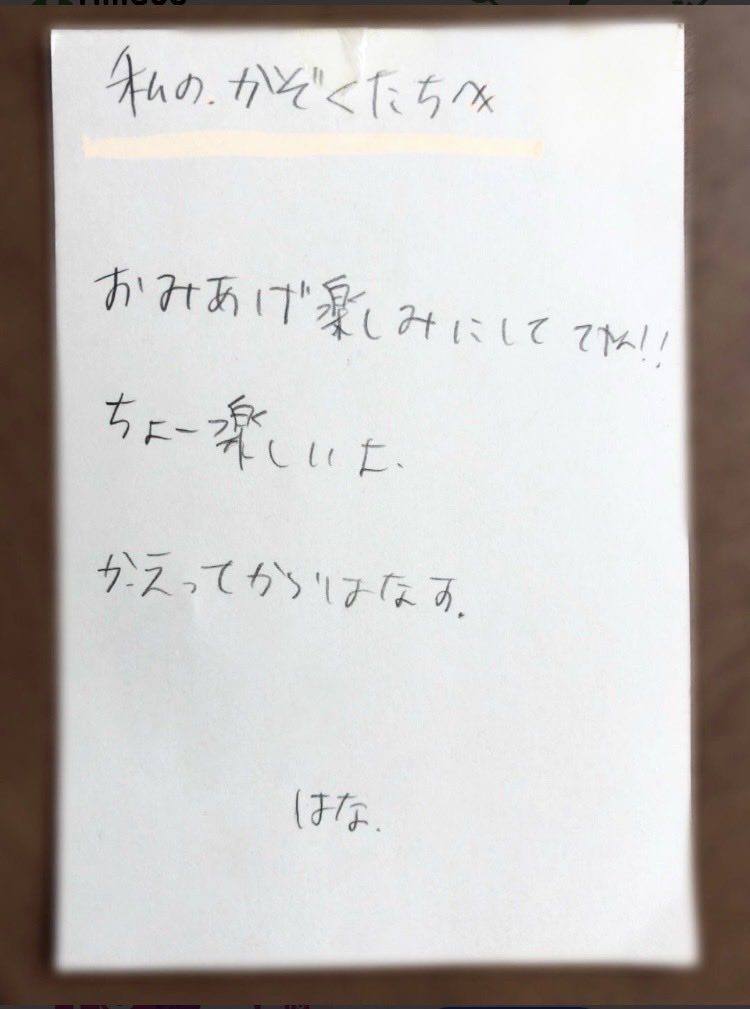 私の.かぞくたちへ
おみあげ楽しみにしててね!!
ちょー楽しいよ.
かえってからはなす.
はな.